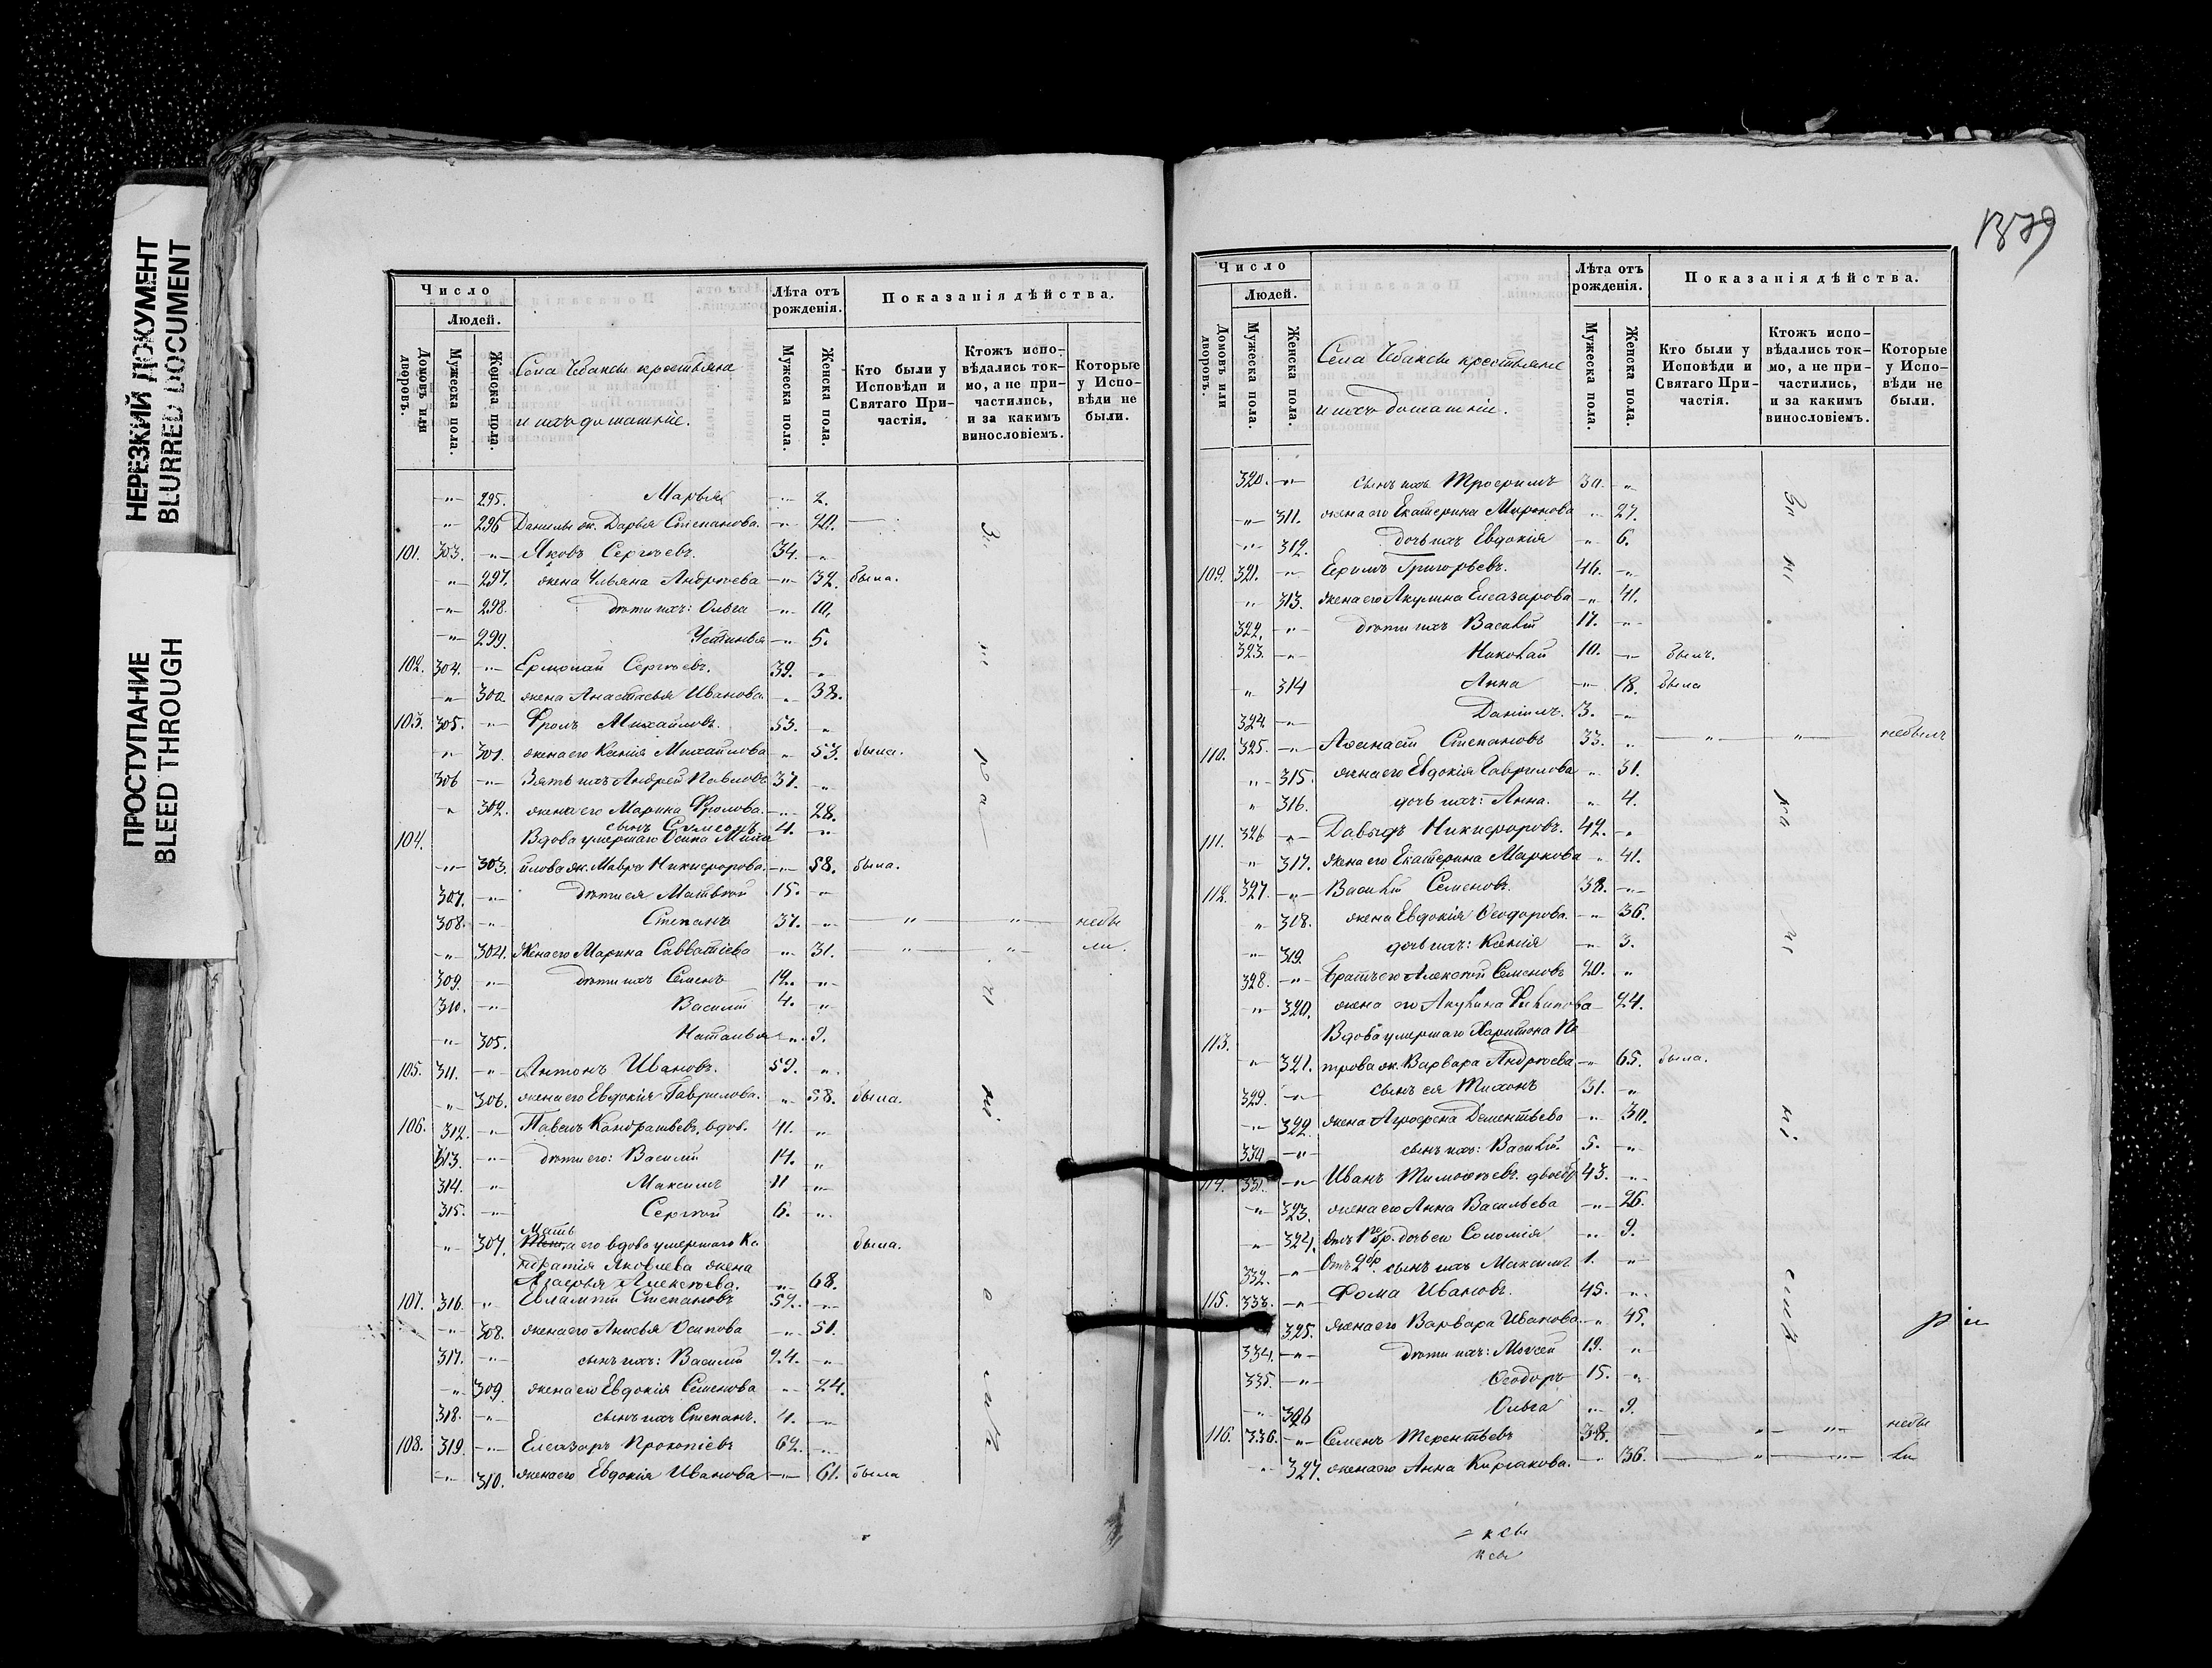 НЕРЕЗКИЙ ДОКУМЕНТ
BLURRED DOCUMENT
ПРОСТУПАНИЕ
BLEED THROUGH
Число
Людей.
Домовъ или дворовъ.
Мужеска пола.
Женска пола.
Села крестьяне
и ихъ домашніе.
Лѣта отъ рожденія.
Мужеска пола.
Женска пола.
Показанія дѣйства.
Кто были у Исповѣди и Святаго Причастія.
Ктожъ исповѣдались токмо, а не причастились, и за какимъ винословіемъ.
Которые у Исповѣди не были.
-„- 295. Марья -„- 2.
-„- 296 Данилы ж. Дарья Степанова. -„- 40.
101. 303. -„- Яковъ Сергѣевъ. 34. -„-
-„- 297. жена Ульяна Андрѣева -„- 32. была.
-„- 298. дѣти ихъ: Ольга -„- 10.
-„- 299. Устинья -„- 5.
102. 304. -„- Ермолай Сергѣевъ. 39. -„-
-„- 300. жена Анастасья Иванова. -„- 38.
103. 305. -„- Фролъ Михайловъ. 53. -„-
-„- 301. жена его Ксенія Михайлова -„- 53. была.
306 -„- Зять ихъ Андрей Павловъ 37. -„-
-„- 302. жена его Марина Фролова. -„- 28.
сынъ Симеонъ 4. -„-
104. Вдова умершаго Осипа Миха
-„- 303. йлова ж. Мавра Никифорова. -„- 58. была.
307. -„- дѣти ея Матвей 15. -„-
308. -„- Степанъ 37. -„- -„- -„- небы
-„- 304. Жена его Марина Савватіева -„- 31. -„- -„- ли.
309. -„- дѣти ихъ Семенъ 12. -„-
310. -„- Василій 4. -„-
-„- 305. Наталья -„- 9.
105. 311. -„- Антонъ Ивановъ. 59. -„-
-„- 306. жена его Евдокія Гаврилова. -„- 58. была.
106. 312. -„- Павелъ Кондратьевъ, вдов. 41. -„-
313. -„- дѣти его: Василій 14. -„-
314. -„- Максимъ 11 -„-
315. -„- Сергѣй 6. -„-
Мать
-„- 307. его вдова умершаго Ко была.
ндратія Яковлева жена
Алексѣева. -„- 68.
107. 316. -„- Евлампій Степановъ 52. -„-
-„- 308. жена его Анисья Осипова -„- 51.
317. -„- сынъ ихъ: Василій 24. -„-
-„- 309 жена его Евдокія Семенова -„- 24.
318. -„- сынъ ихъ Степанъ. 4. -„-
108. 319. -„- Елеазаръ Прокопіевъ 62. -„-
-„- 310. жена его Евдокія Иванова -„- 61. была
1379
Число
Людей.
Домовъ или дворовъ.
Мужеска пола.
Женска пола.
Села крестьяне
и ихъ домашніе.
Лѣта отъ рожденія.
Мужеска пола.
Женска пола.
Показанія дѣйства.
Кто были у Исповѣди и Святаго Причастія.
Ктожъ исповѣдались токмо, а не причастились, и за какимъ винословіемъ.
Которые у Исповѣди не были.
320. -„- сынъ ихъ Трофимъ 30. -„-
-„- 311. жена его Екатерина Миронова -„- 27.
-„- 312. дочь ихъ Евдокія -„- 6.
109. 321. -„- Ефимъ Григорьевъ. 46. -„-
-„- 313. жена его Акулина Елеазарова -„- 41.
322. -„- дѣти ихъ Василій 17. -„-
323. -„- Николай 10. -„- былъ.
-„- 314 Анна -„- 18. была
324 -„- Даніилъ. 3. -„-
110. 325. -„- Аѳанасій Степановъ 33. -„- -„- -„- небылъ
-„- 315. жена его Евдокія Гаврилова -„- 31.
-„- 316. дочь ихъ: Анна. -„- 4.
111. 326 -„- Давыдъ Никифоровъ. 42. -„-
-„- 317. жена его Екатерина Маркова -„- 41.
112. 327. -„- Василій Семеновъ. 38. -„-
-„- 318. жена Евдокія Ѳеодорова. -„- 36.
-„- 319. дочь ихъ: Ксенія -„- 3.
328. -„- Братъ его Алексѣй Семеновъ 20. -„-
-„- 320. жена его Акулина Филипова -„- 24.
113. Вдова умершаго Харитона Пе
-„- 321. трова ж. Варвара Андрѣева -„- 65. была.
329. -„- сынъ ея Тихонъ 31. -„-
-„- 322. жена Агрофена Дементьева -„- 30.
330 -„- сынъ ихъ: Василій. 5. -„-
114. 331. -„- Иванъ Тимоѳеевъ. двоебр 43. -„-
-„- 323. жена его Анна Васильева -„- 26.
-„- 324. Отъ 1го бр. дочь ея Соломія -„- 9.
332. -„- Отъ 2 бр. сынъ ихъ Максимъ 1. -„-
115. 333. -„- Фома Ивановъ. 45. -„-
325. жена его Варвара Иванова. -„- 45.
334. -„- дѣти ихъ: Моисей 19. -„-
335. -„- Ѳеодоръ 15. -„-
-„- 326 Ольга -„- 9.
116. 336. -„- Семенъ Терентьевъ 38. -„- -„- небы
-„- 327. жена его Анна Кирсакова. -„- 36. -„- -„- ли